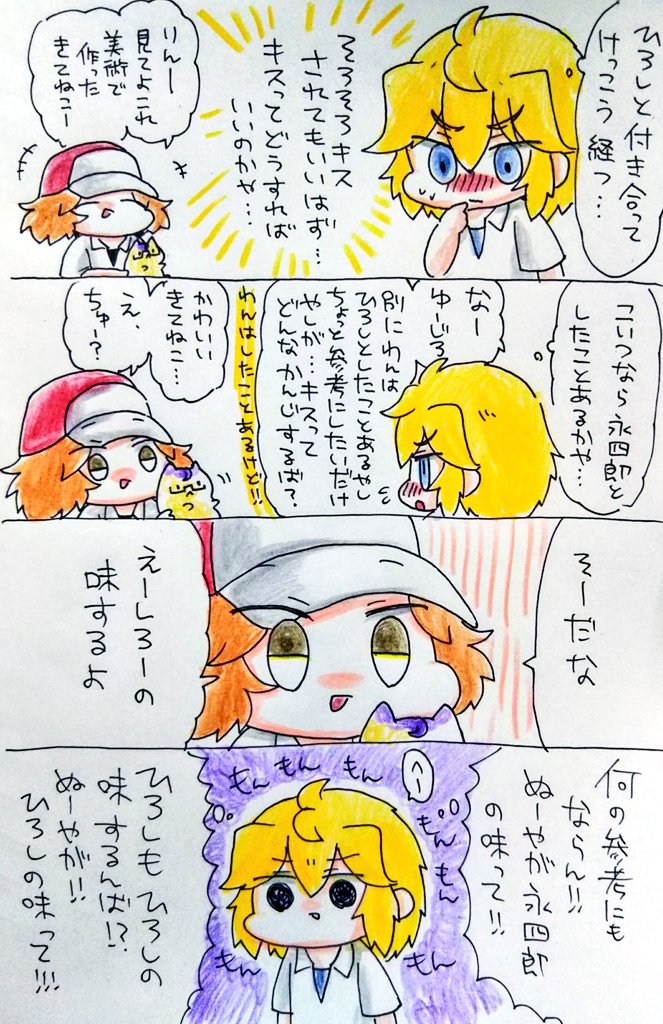 ひろしと付き合って
けっこう経つ…
そろそろキス
されてもいいはず…
キスってどうすれば
いいのかや…
りんー
見てよこれ
美術で
作った
きてねこー
こいつなら永四郎と
したことあるかや…
なー
ゆーじろ
別にわんは
ひろしとしたことあるやし
ちょっと参考にしたいだけ
やしが…キスって
どんなかんじするば?
わんはしたことあるけど!!
かわいい
きてねこ…
え、
ちゅー?
そーだな
えーしろーの
味するよ
何の参考にも
ならん!!
ぬーやが永四郎
の味って!!
へー
もん
もん
もん
もん
もん
もん
もん
ひろしもひろしの
味するんば!?
ぬーやが!!
ひろしの味って!!!